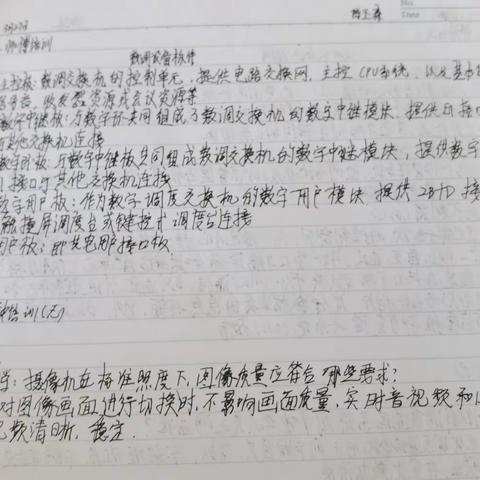 No.
Date
师傅培训
数调设备板件
主控板:数调交换机的控制单元,提供电路交换网、主控CPU系统、以及基本的
信号音、收发器资源或会议资源等
数字中继板:与数字环共同组成了数调交换机的数字中继模块,提供E1接口
与其他交换机连接
数字环板:与数字中继板共同组成数调交换机的数字中继模块,提供数字
接口与其他交换机连接
数字用户板:作为数字调度交换机的数字用户模块 提供2B+D接
触摸屏调度台或键控式调度台连接
用户板:即共电用户接口板
培训(无)
答:摄像机在标准照度下,图像质量应符合哪些要求?
对图像画面进行切换时,不影响画面质量,实时音视频和
视频清晰,稳定.